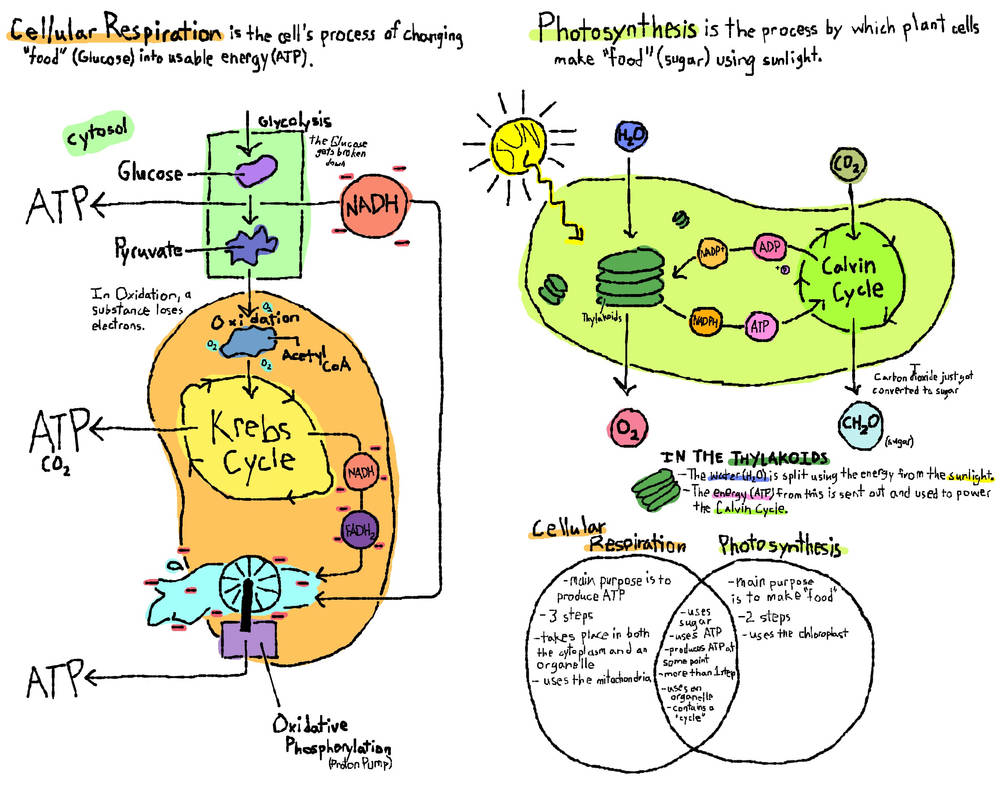 Cellular Respiration is the cell's process of changing
"food" (Glucose) into usable energy (ATP).
cytosol
Glycolysis
the Glucose
gets broken
down
Glucose
ATP
NADH
Pyruvate
In Oxidation, a
substance loses
electrons.
O2
Oxidation
O2
Acetyl
CoA
O2
ATP
CO2
Krebs
Cycle
NADH
FADH2
ATP
Oxidative
Phosphorylation
(Proton Pump)
Photosynthesis is the process by which plant cells
make "food" (sugar) using sunlight.
SUN
H2O
CO2
NADP+
ADP
+P
Calvin
Cycle
Thylakoids
NADPH
ATP
Carbon dioxide just got
converted to sugar
O2
CH2O
(sugar)
IN THE THYLAKOIDS
- The water (H2O) is split using the energy from the sunlight.
- The energy (ATP) from this is sent out and used to power
the Calvin Cycle.
Cellular
Respiration
Photosynthesis
- main purpose is to
produce ATP
- 3 steps
- takes place in both
the cytoplasm and an
organelle
- uses the mitochondria
- uses
sugar
- uses ATP
- produces ATP at
some point
- more than 1 step
- uses an
organelle
- contains a
"cycle"
- main purpose
is to make "food"
- 2 steps
- uses the chloroplast